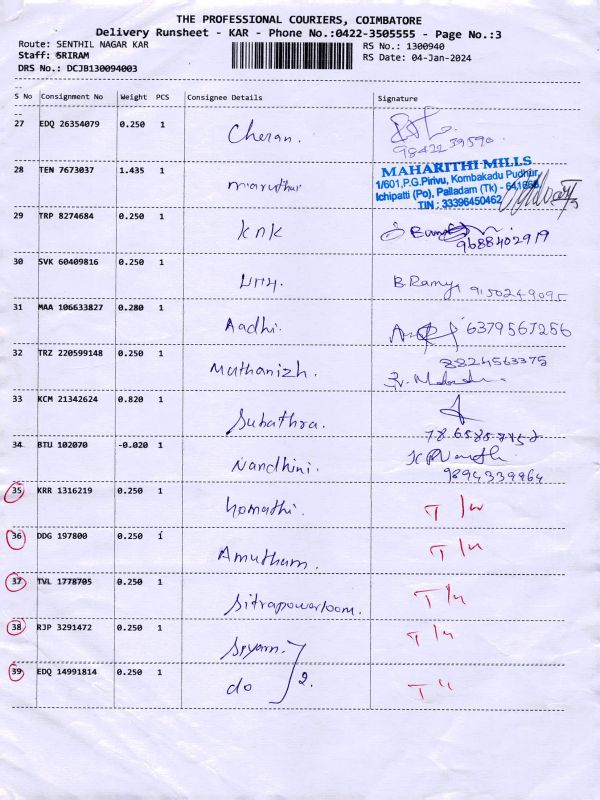 THE PROFESSIONAL COURIERS, COIMBATORE
Delivery Runsheet - KAR - Phone No.:0422-3505555 - Page No.:3
Route: SENTHIL NAGAR KAR RS No.: 1300940
Staff: SRIRAM RS Date: 04-Jan-2024
DRS No.: DCJB130094003
S No Consignment No Weight PCS Consignee Details Signature
27 EDQ 26354079 0.250 1 Cheran.
9842239590
28 TEN 7673037 1.435 1 maruthui
MAHARITHI MILLS
1/601,P.G.Pirivu, Kombakadu Pudhur,
Ichipatti (Po), Palladam (Tk) - 641668.
TIN : 33396450462
29 TRP 8274684 0.250 1 knk
9688402919
30 SVK 60409816 0.250 1 B.Ramya 9150249095
31 MAA 106633827 0.280 1 Aadhi. 6379567256
32 TRZ 220599148 0.250 1 Muthanizh.
8224563375
33 KCM 21342624 0.820 1 Subathra.
34 BTU 102070 -0.020 1 Nandhini.
9894339964
35 KRR 1316219 0.250 1 homathi.
36 DDG 197800 0.250 1 Amutham.
37 TVL 1778705 0.250 1 Sitrapowerloom.
38 RJP 3291472 0.250 1 Siyam.
39 EDQ 14991814 0.250 1 do 2.